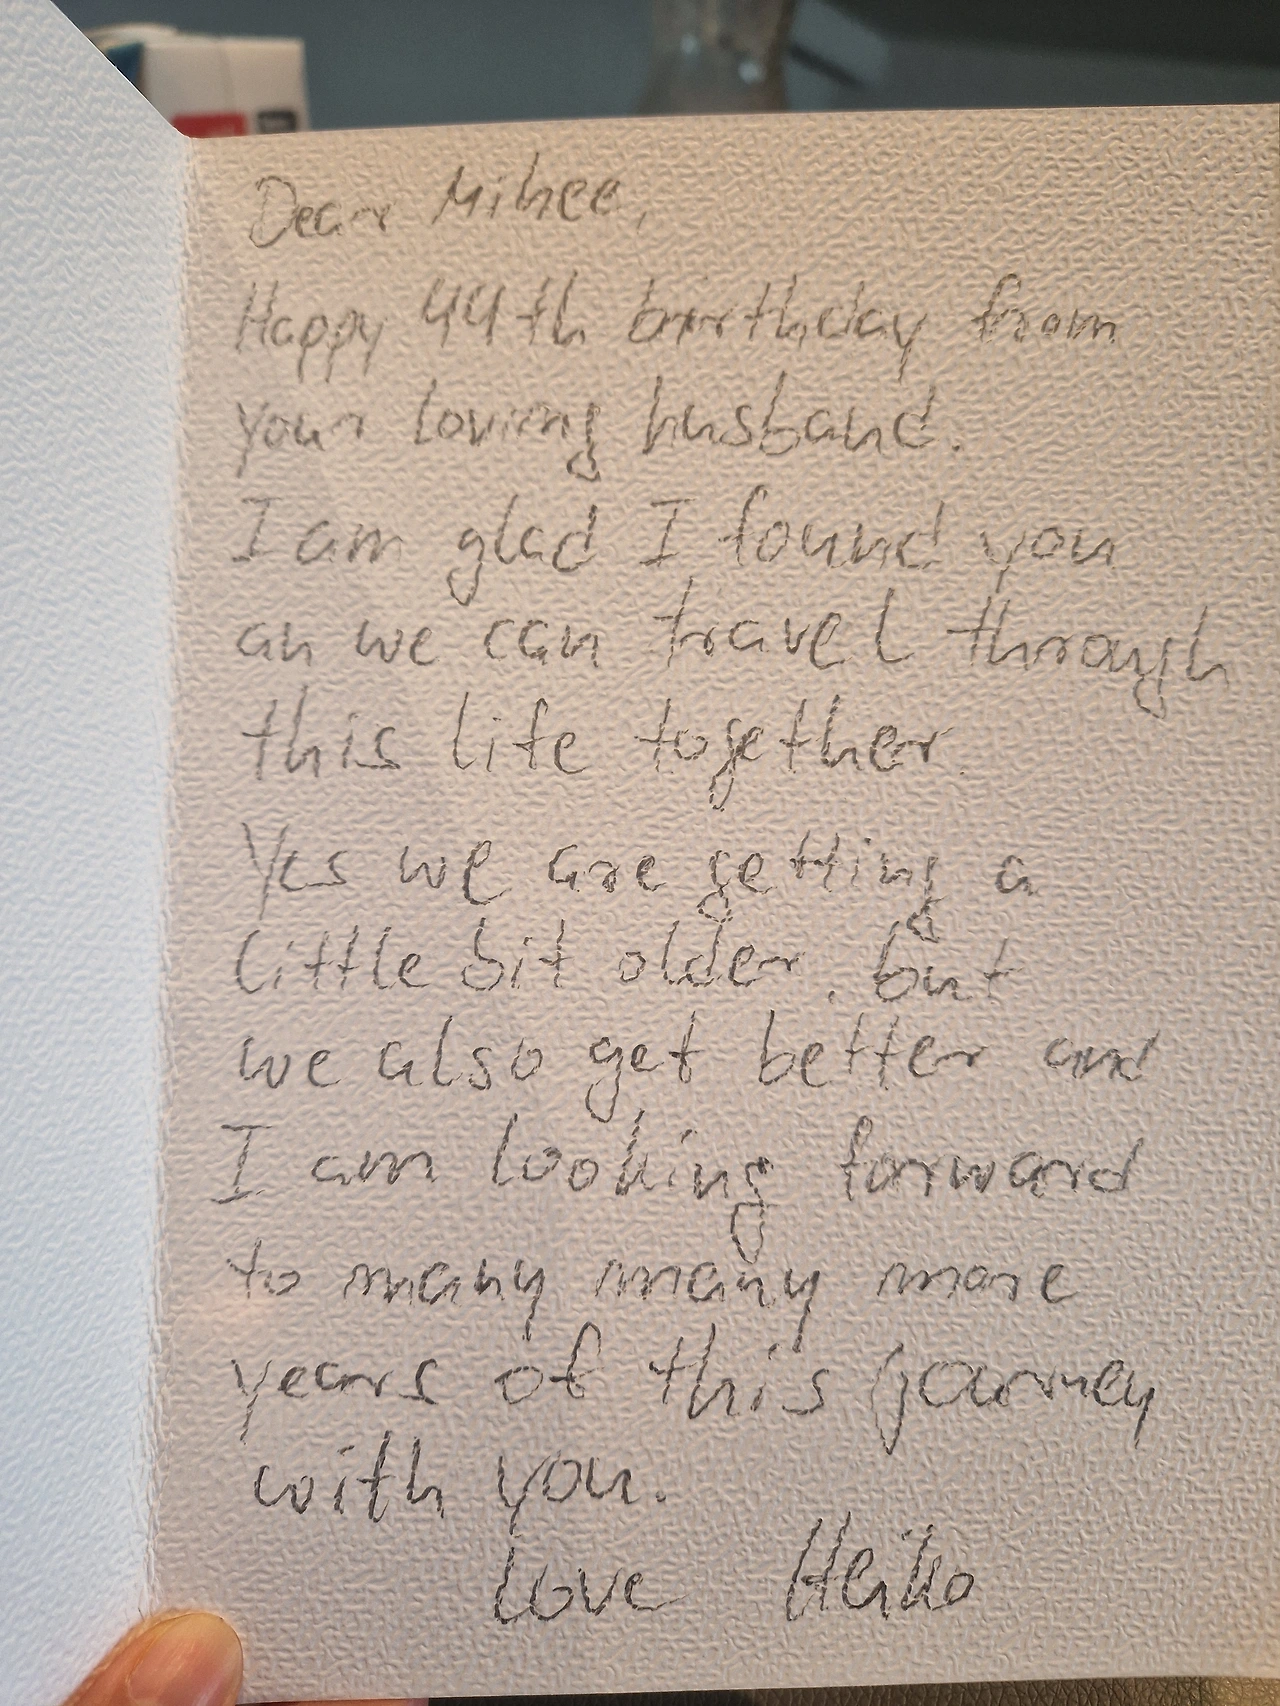 Dear Mihee,
Happy 44th birthday from
your loving husband.
I am glad I found you
an we can travel through
this life together.
Yes we are getting a
little bit older, but
we also get better and
I am looking forward
to many many more
years of this journey
with you.
Love Heiko